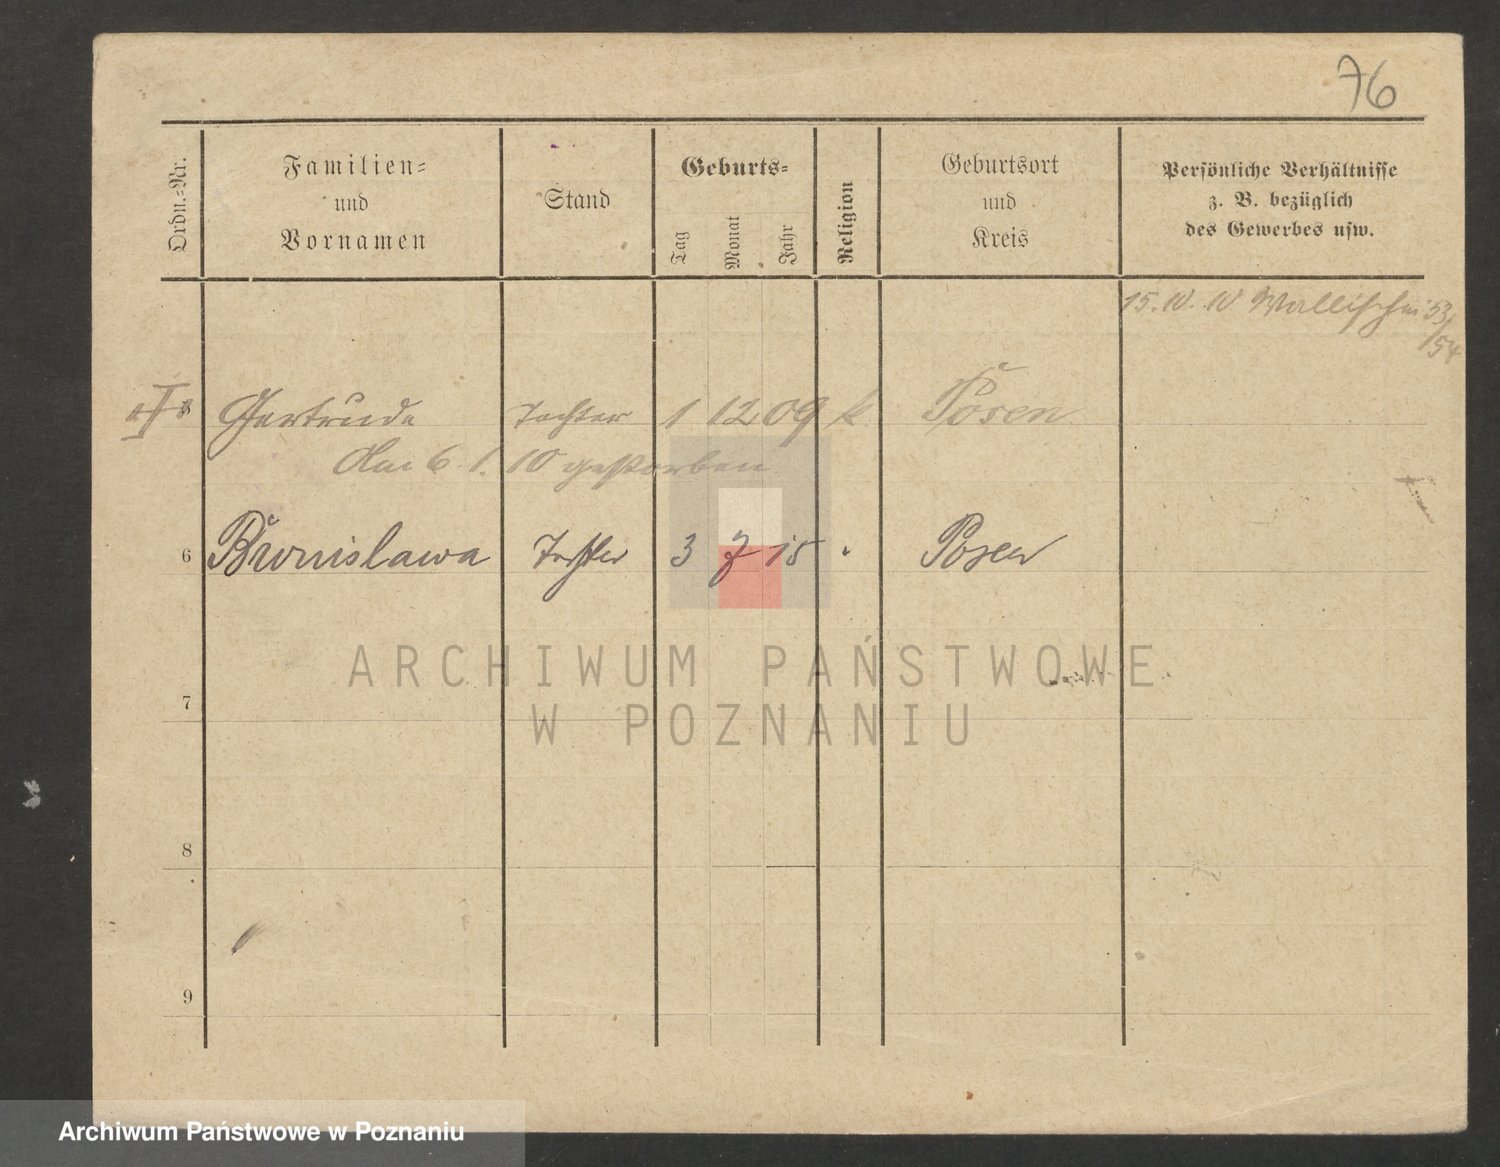 76
Ordn.=Nr.
Familien=
und
Vornamen
Stand
Geburts=
Tag
Monat
Jahr
Religion
Geburtsort
und
Kreis
Persönliche Verhältnisse
z. B. bezüglich
des Gewerbes usw.
15. IV. 10 Wallischei 53/54
Gertrude Tochter 1 12 09 k Posen
Am 6. 1. 10 gestorben
6 Bronislawa Tochter 3 7 15 " Posen
ARCHIWUM PAŃSTWOWE
W POZNANIU
7
8
9
Archiwum Państwowe w Poznaniu